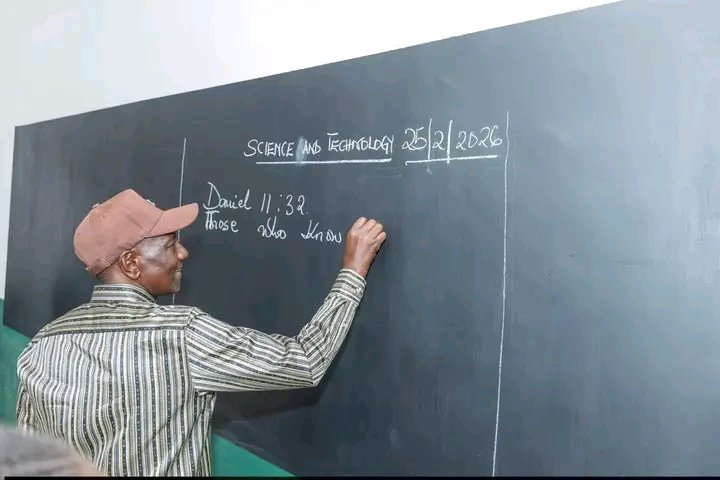 SCIENCE AND TECHNOLOGY 25/2/2026
Daniel 11:32.
Those who know